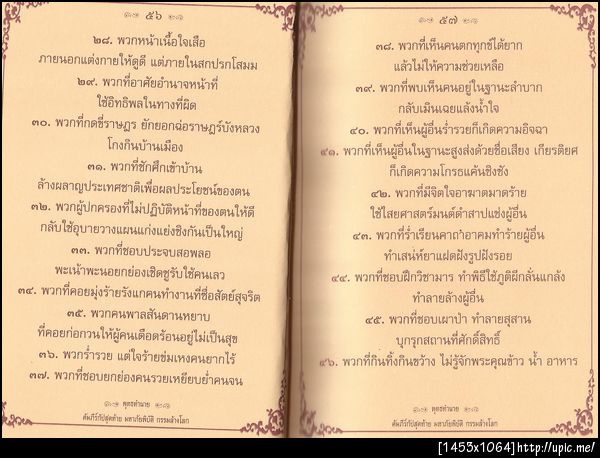 ๕๖
๒๘. พวกหน้าเนื้อใจเสือ
ภายนอกแต่งกายให้ดูดี แต่ภายในสกปรกโสมม
๒๙. พวกที่อาศัยอำนาจหน้าที่
ใช้อิทธิพลในทางที่ผิด
๓๐. พวกที่กดขี่ราษฎร ยักยอกฉ่อราษฎร์บังหลวง
โกงกินบ้านเมือง
๓๑. พวกที่ชักศึกเข้าบ้าน
ล้างผลาญประเทศชาติเพื่อผลประโยชน์ของตน
๓๒. พวกผู้ปกครองที่ไม่ปฏิบัติหน้าที่ของตนให้ดี
กลับใช้อุบายวางแผนแก่งแย่งชิงกันเป็นใหญ่
๓๓. พวกที่ชอบประจบสอพลอ
พะเน้าพะนอยกย่องเชิดชูรับใช้คนเลว
๓๔. พวกที่คอยมุ่งร้ายรังแกคนทำงานที่ซื่อสัตย์สุจริต
๓๕. พวกคนพาลสันดานหยาบ
ที่คอยก่อกวนให้ผู้คนเดือดร้อนอยู่ไม่เป็นสุข
๓๖. พวกร่ำรวย แต่ใจร้ายข่มเหงคนยากไร้
๓๗. พวกที่ชอบยกย่องคนรวยเหยียบย่ำคนจน
พุทธทำนาย
คัมภีร์กัปสุดท้าย มหาภัยพิบัติ กรรมล้างโลก
๕๗
๓๘. พวกที่เห็นคนตกทุกข์ได้ยาก
แล้วไม่ให้ความช่วยเหลือ
๓๙. พวกที่พบเห็นคนอยู่ในฐานะลำบาก
กลับเมินเฉยแล้งน้ำใจ
๔๐. พวกที่เห็นผู้อื่นร่ำรวยก็เกิดความอิจฉา
๔๑. พวกที่เห็นผู้อื่นในฐานะสูงส่งด้วยชื่อเสียง เกียรติยศ
ก็เกิดความโกรธแค้นชิงชัง
๔๒. พวกที่มีจิตใจอาฆาตมาดร้าย
ใช้ไสยศาสตร์มนต์ดำสาปแช่งผู้อื่น
๔๓. พวกที่ร่ำเรียนคาถาอาคมทำร้ายผู้อื่น
ทำเสน่ห์ยาแฝดฝังรูปฝังรอย
๔๔. พวกที่ชอบฝึกวิชามาร ทำพิธีใช้ภูติผีกลั่นแกล้ง
ทำลายล้างผู้อื่น
๔๕. พวกที่ชอบเผาป่า ทำลายสุสาน
บุกรุกสถานที่ศักดิ์สิทธิ์
๔๖. พวกที่กินทิ้งกินขว้าง ไม่รู้จักพระคุณข้าว น้ำ อาหาร
พุทธทำนาย
คัมภีร์กัปสุดท้าย มหาภัยพิบัติ กรรมล้างโลก
[1453x1064]http://upic.me/